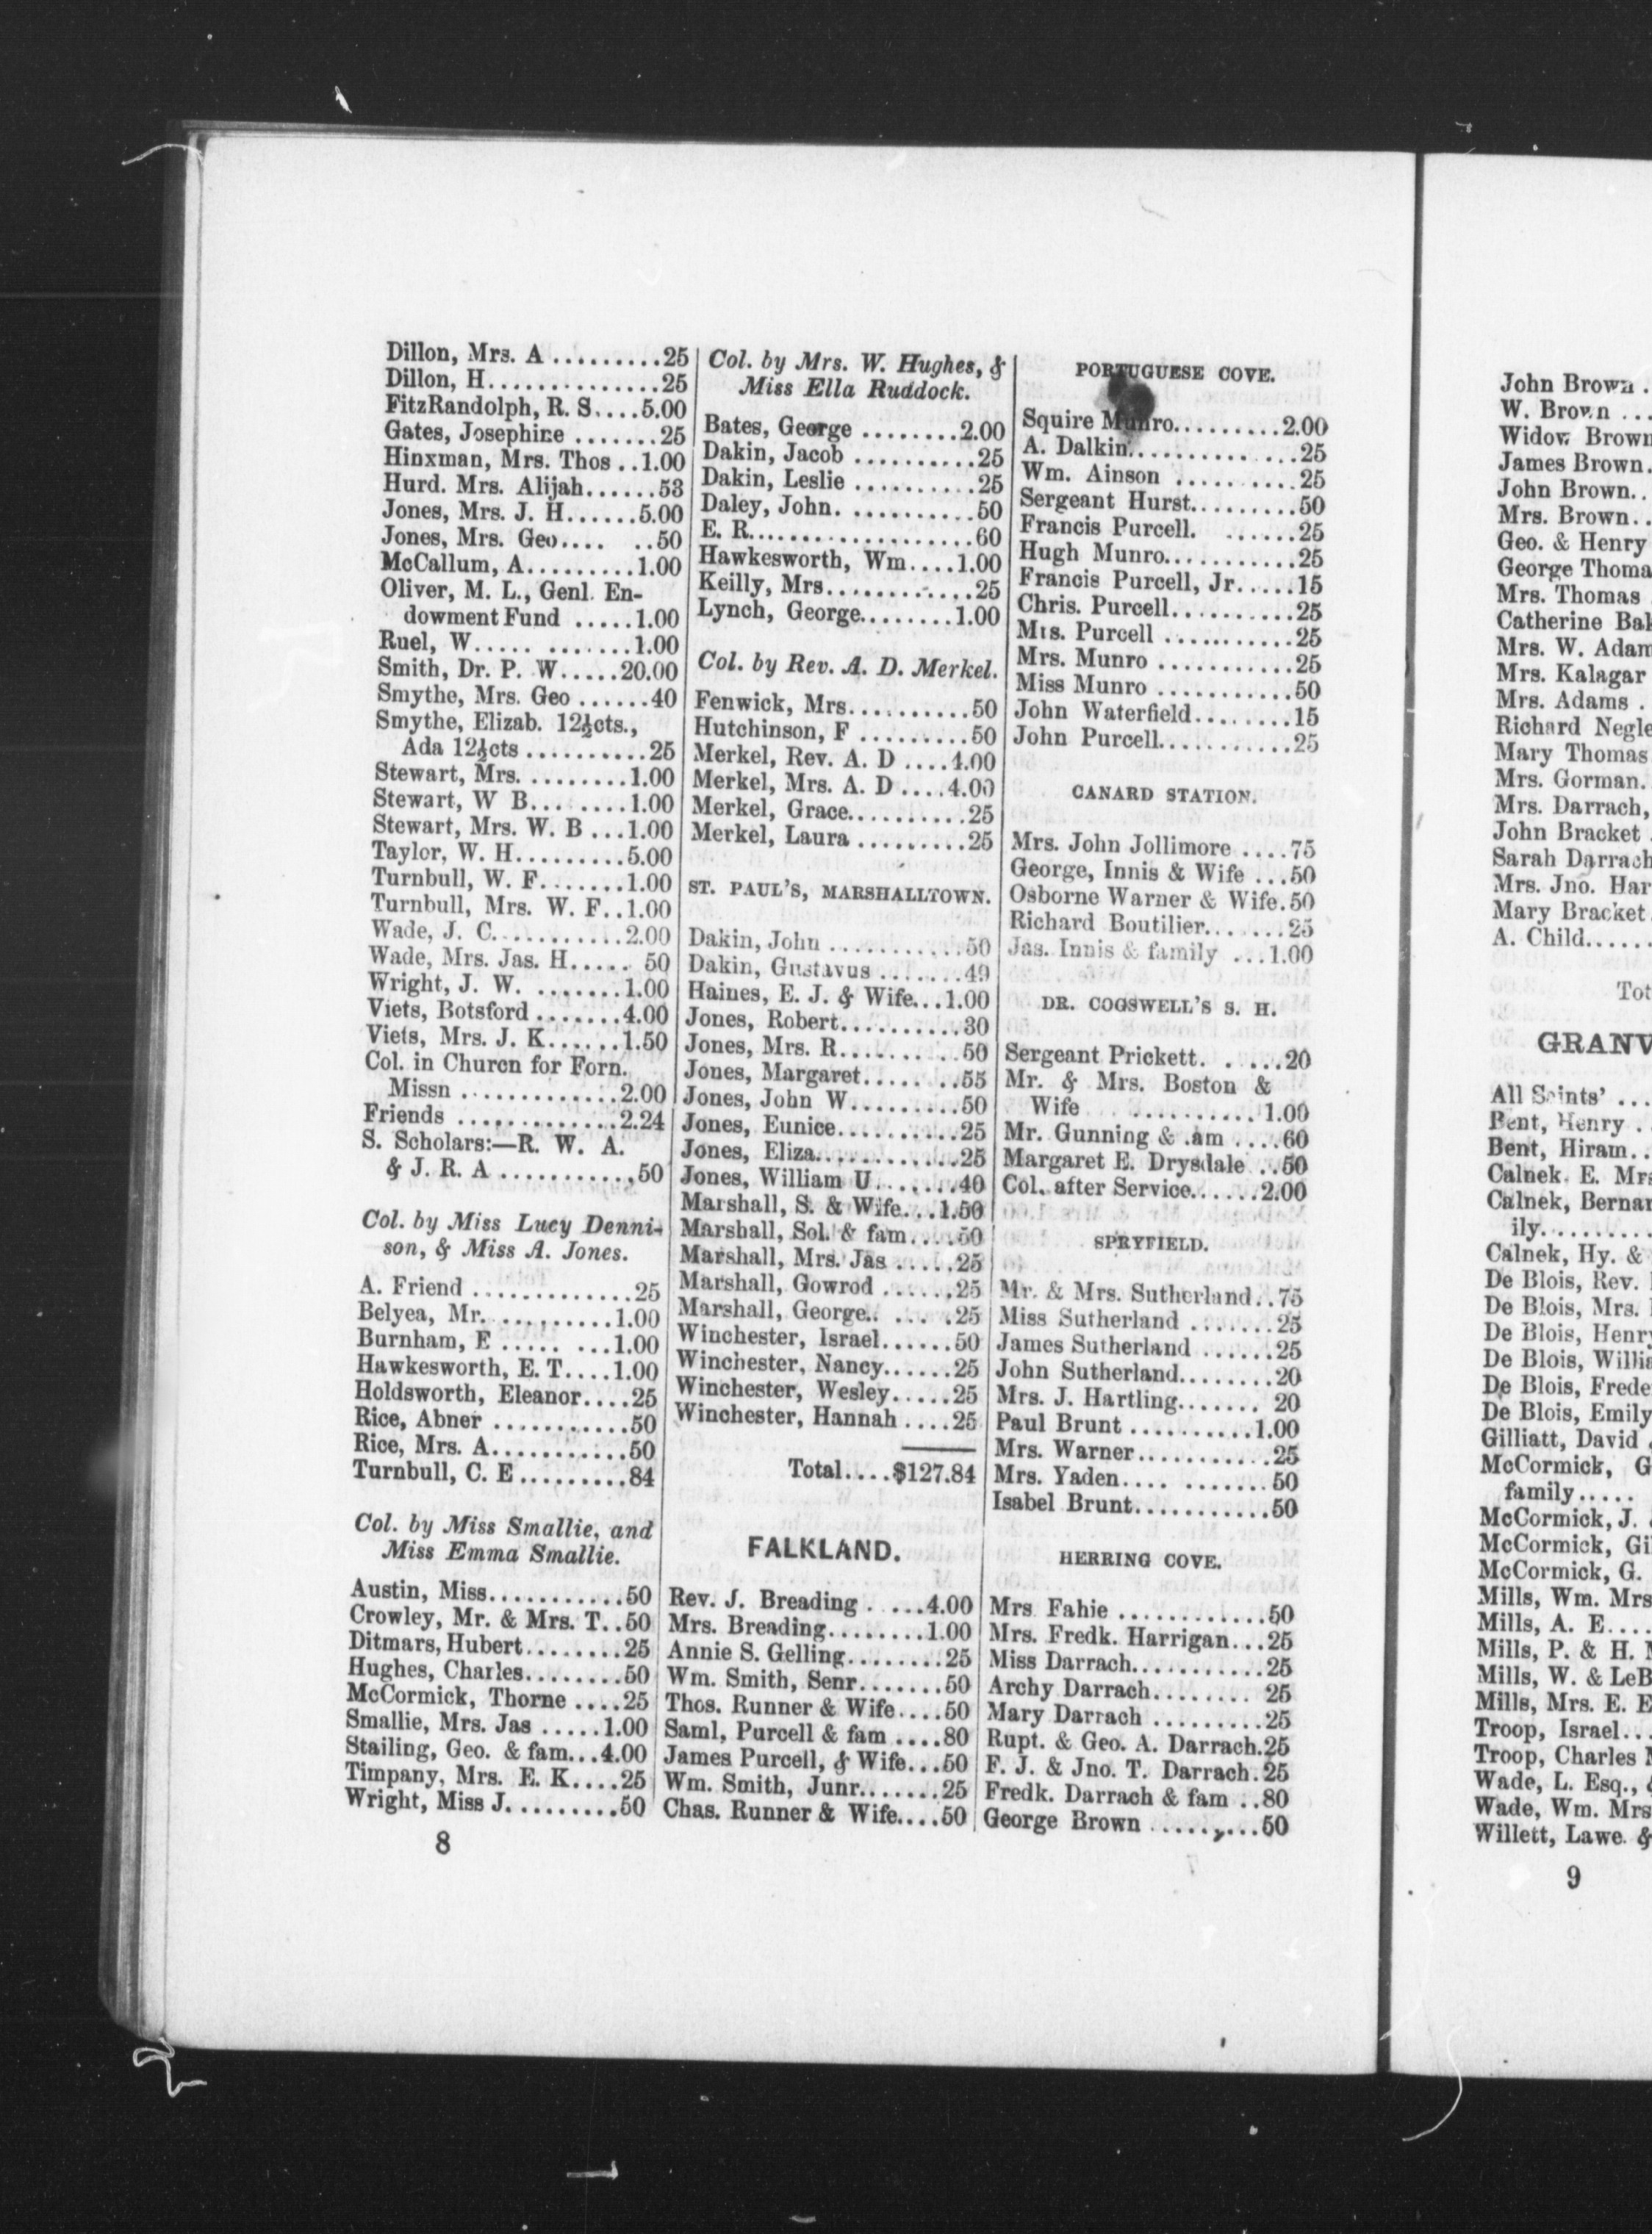 Dillon, Mrs. A .........25
Dillon, H..............25
FitzRandolph, R. S....5.00
Gates, Josephine .......25
Hinxman, Mrs. Thos ..1.00
Hurd. Mrs. Alijah......53
Jones, Mrs. J. H......5.00
Jones, Mrs. Geo.... ..50
McCallum, A.........1.00
Oliver, M. L., Genl. En-
dowment Fund .....1.00
Ruel, W..... .......1.00
Smith, Dr. P. W.....20.00
Smythe, Mrs. Geo ......40
Smythe, Elizab. 12½cts.,
Ada 12½cts ..........25
Stewart, Mrs. .........1.00
Stewart, W B.........1.00
Stewart, Mrs. W. B ...1.00
Taylor, W. H.........5.00
Turnbull, W. F.......1.00
Turnbull, Mrs. W. F..1.00
Wade, J. C...........2.00
Wade, Mrs. Jas. H..... 50
Wright, J. W. ........1.00
Viets, Botsford .......4.00
Viets, Mrs. J. K......1.50
Col. in Church for Forn.
Missn .............2.00
Friends .............2.24
S. Scholars:—R. W. A.
& J. R. A ............50
Col. by Miss Lucy Denni-
son, & Miss A. Jones.
A. Friend .............25
Belyea, Mr. ..........1.00
Burnham, E ..... ...1.00
Hawkesworth, E. T....1.00
Holdsworth, Eleanor....25
Rice, Abner ...........50
Rice, Mrs. A...........50
Turnbull, C. E .........84
Col. by Miss Smallie, and
Miss Emma Smallie.
Austin, Miss...........50
Crowley, Mr. & Mrs. T..50
Ditmars, Hubert........25
Hughes, Charles........50
McCormick, Thorne ....25
Smallie, Mrs. Jas .....1.00
Stailing, Geo. & fam...4.00
Timpany, Mrs. E. K....25
Wright, Miss J..........50
8
Col. by Mrs. W. Hughes, &
Miss Ella Ruddock.
Bates, George ........2.00
Dakin, Jacob ..........25
Dakin, Leslie ..........25
Daley, John. ..........50
E. R...................60
Hawkesworth, Wm....1.00
Keilly, Mrs............25
Lynch, George........1.00
Col. by Rev. A. D. Merkel.
Fenwick, Mrs..........50
Hutchinson, F .........50
Merkel, Rev. A. D ....4.00
Merkel, Mrs. A. D ....4.00
Merkel, Grace..........25
Merkel, Laura .........25
ST. PAUL'S, MARSHALLTOWN.
Dakin, John ...........50
Dakin, Gustavus .......49
Haines, E. J. & Wife...1.00
Jones, Robert..........30
Jones, Mrs. R..........50
Jones, Margaret........55
Jones, John W.........50
Jones, Eunice..........25
Jones, Eliza............25
Jones, William U.......40
Marshall, S. & Wife...1.50
Marshall, Sol. & fam....50
Marshall, Mrs. Jas .....25
Marshall, Gowrod ......25
Marshall, George.. ... ..25
Winchester, Israel......50
Winchester, Nancy......25
Winchester, Wesley.....25
Winchester, Hannah ....25
Total....$127.84
FALKLAND.
Rev. J. Breading . ....4.00
Mrs. Breading........1.00
Annie S. Gelling........25
Wm. Smith, Senr.......50
Thos. Runner & Wife....50
Saml, Purcell & fam ....80
James Purcell, & Wife...50
Wm. Smith, Junr.......25
Chas. Runner & Wife....50
PORTUGUESE COVE.
Squire Munro.........2.00
A. Dalkin..............25
Wm. Ainson ..........25
Sergeant Hurst.........50
Francis Purcell. .......25
Hugh Munro............25
Francis Purcell, Jr.....15
Chris. Purcell..........25
Mrs. Purcell ...........25
Mrs. Munro ...........25
Miss Munro ...........50
John Waterfield........15
John Purcell...........25
CANARD STATION.
Mrs. John Jollimore ....75
George, Innis & Wife ...50
Osborne Warner & Wife.50
Richard Boutilier.......25
Jas. Innis & family ...1.00
DR. COGSWELL'S S. H.
Sergeant Prickett. . ....20
Mr. & Mrs. Boston &
Wife ..........1.00
Mr. Gunning & .am ....60
Margaret E. Drysdale ..50
Col. after Service......2.00
SPRYFIELD.
Mr. & Mrs. Sutherland..75
Miss Sutherland .......25
James Sutherland ......25
John Sutherland........20
Mrs. J. Hartling....... 20
Paul Brunt ..........1.00
Mrs. Warner...........25
Mrs. Yaden.... .......50
Isabel Brunt...........50
HERRING COVE.
Mrs Fahie ............50
Mrs. Fredk. Harrigan...25
Miss Darrach...........25
Archy Darrach........ 25
Mary Darrach .........25
Rupt. & Geo. A. Darrach.25
F. J. & Jno. T. Darrach.25
Fredk. Darrach & fam ..80
George Brown .........50
John Brown .
W. Brown ...
Widow Brown
James Brown.
John Brown..
Mrs. Brown..
Geo. & Henry
George Thoma
Mrs. Thomas
Catherine Bak
Mrs. W. Adam
Mrs. Kalagar
Mrs. Adams .
Richard Negle
Mary Thomas
Mrs. Gorman.
Mrs. Darrach,
John Bracket
Sarah Darrach
Mrs. Jno. Har
Mary Bracket
A. Child......
Tot
GRANV
All Saints' ...
Bent, Henry .
Bent, Hiram..
Calnek. E. Mrs
Calnek, Bernar
ily.........
Calnek, Hy. &
De Blois, Rev.
De Blois, Mrs.
De Blois, Henry
De Blois, Willia
De Blois, Frede
De Blois, Emily
Gilliatt, David
McCormick, G
family.....
McCormick, J.
McCormick, Gi
McCormick, G.
Mills, Wm. Mrs
Mills, A. E....
Mills, P. & H.
Mills, W. & LeB
Mills, Mrs. E. E
Troop, Israel...
Troop, Charles
Wade, L. Esq.,
Wade, Wm. Mrs
Willett, Lawe. &
9